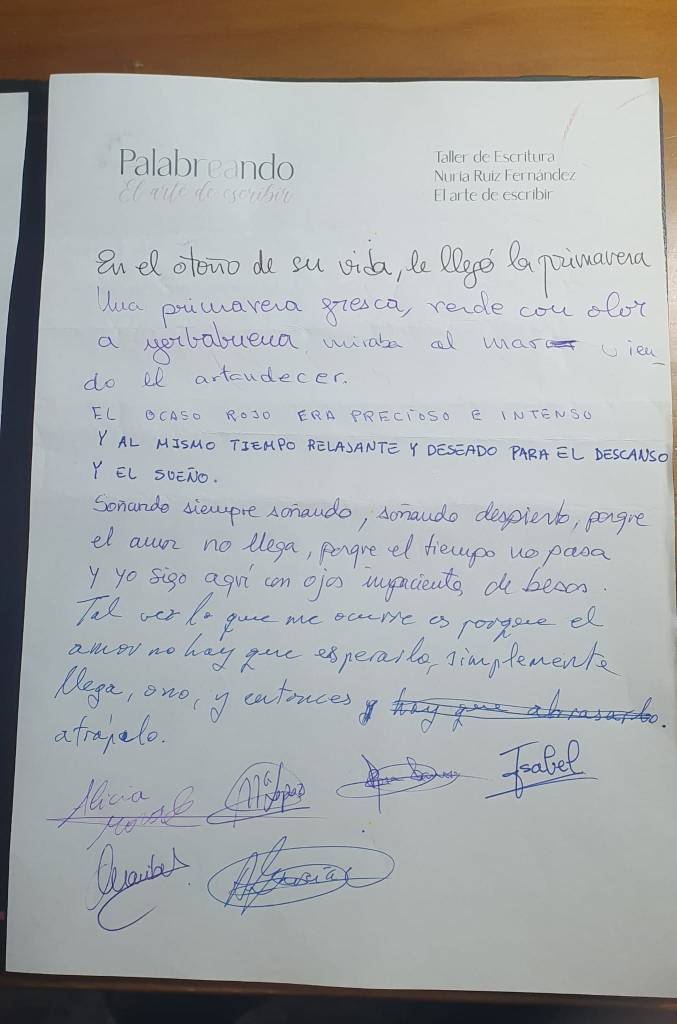 Palabreando
El arte de escribir
Taller de Escritura
Nuria Ruiz Fernández
El arte de escribir
En el otoño de su vida, le llegó la primavera
Una primavera fresca, verde con olor
a yerbabuena miraba al mar vien-
do el artandecer.
EL OCASO ROJO ERA PRECIOSO E INTENSO
Y AL MISMO TIEMPO RELAJANTE Y DESEADO PARA EL DESCANSO
Y EL SUEÑO.
Soñando siempre soñando, soñando despierto, porque
el amor no llega, porque el tiempo no pasa
y yo sigo aquí con ojos impacientes de besos.
Tal vez lo que me ocurre es porque el
amor no hay que esperarlo, simplemente
llega, o no, y entonces y hay que abrasarlo.
atrápalo.
Alicia
Mª López
Isabel
Maribel